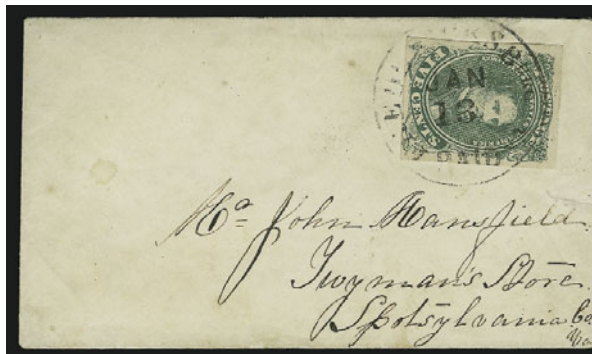 JAN
13
PAID
FIVE CENTS
Mr John Mansfield
Twyman's Store
Spotsylvania Co.
Va